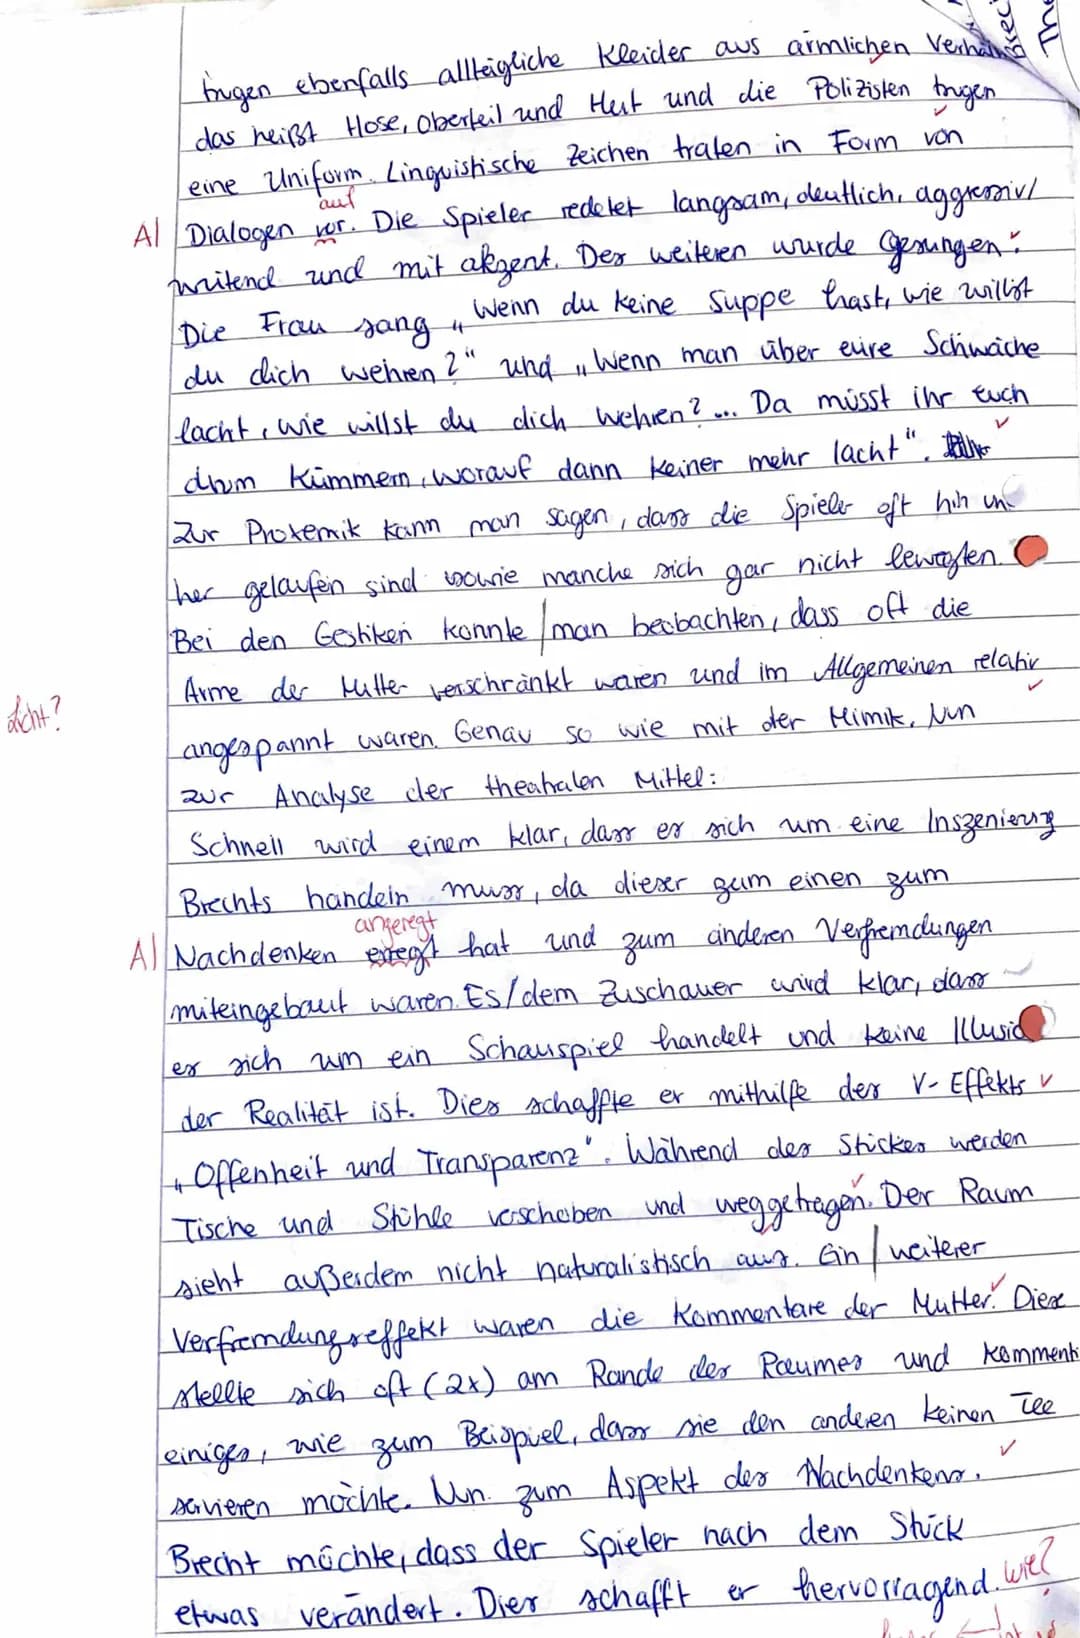 trugen ebenfalls alltägliche Kleider aus ärmlichen
das heißt Hose, Oberteil und Hut und die Polizisten trugen
eine Uniform. Linguistische Zeichen traten in Form von
auf
A| Dialogen vor. Die Spieler redetet langsam, deutlich, aggressiv/
wütend und mit akzent. Des weiteren wurde gesungen:
Die Frau sang „Wenn du keine Suppe hast, wie willst
du dich wehren?" und „Wenn man über eure Schwäche
lacht, wie willst du dich wehren? ... Da müsst ihr euch
drum kümmern, worauf dann keiner mehr lacht".
Zur Proxemik kann man sagen, dass die Spieler oft hin
her gelaufen sind sowie manche sich gar nicht bewegten.
Bei den Gestiken konnte man beobachten, dass oft die
Arme der Mutter verschränkt waren und im Allgemeinen relativ
angespannt waren. Genau so wie mit der Mimik. Nun
zur Analyse der theatralen Mittel:
Schnell wird einem klar, dass es sich um eine Inszenierung
Brechts handeln muss, da dieser zum einen zum
angeregt
A| Nachdenken erregt hat und zum anderen Verfremdungen
miteingebaut waren. Es/dem Zuschauer wird klar, dass
es sich um ein Schauspiel handelt und keine
der Realität ist. Dies schaffte er mithilfe des V-Effekts
„Offenheit und Transparenz". Während des Stückes werden
Tische und Stühle verschoben und weggetragen. Der Raum
sieht außerdem nicht naturalistisch aus. Ein weiterer
Verfremdungseffekt waren die Kommentare der Mutter. Diese
stellte sich oft (2x) am Rande des Raumes und
einiges, wie zum Beispiel, dass sie den anderen keinen Tee
servieren möchte. Nun zum Aspekt des Nachdenkens.
Brecht möchte, dass der Spieler nach dem Stück
etwas verändert. Dies schafft er hervorragend. wie?